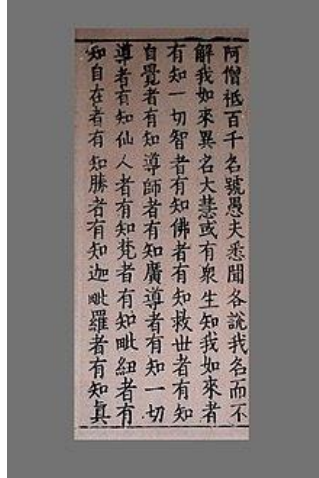 阿僧祇百千名號愚夫悉聞各說我名而不
解我如來異名大慧或有衆生知我如來者
有知一切智者有知佛者有知救世者有知
自覺者有知導師者有知廣導者有知一切
導者有知仙人者有知梵者有知毗紐者有
知自在者有知勝者有知迦毗羅者有知真